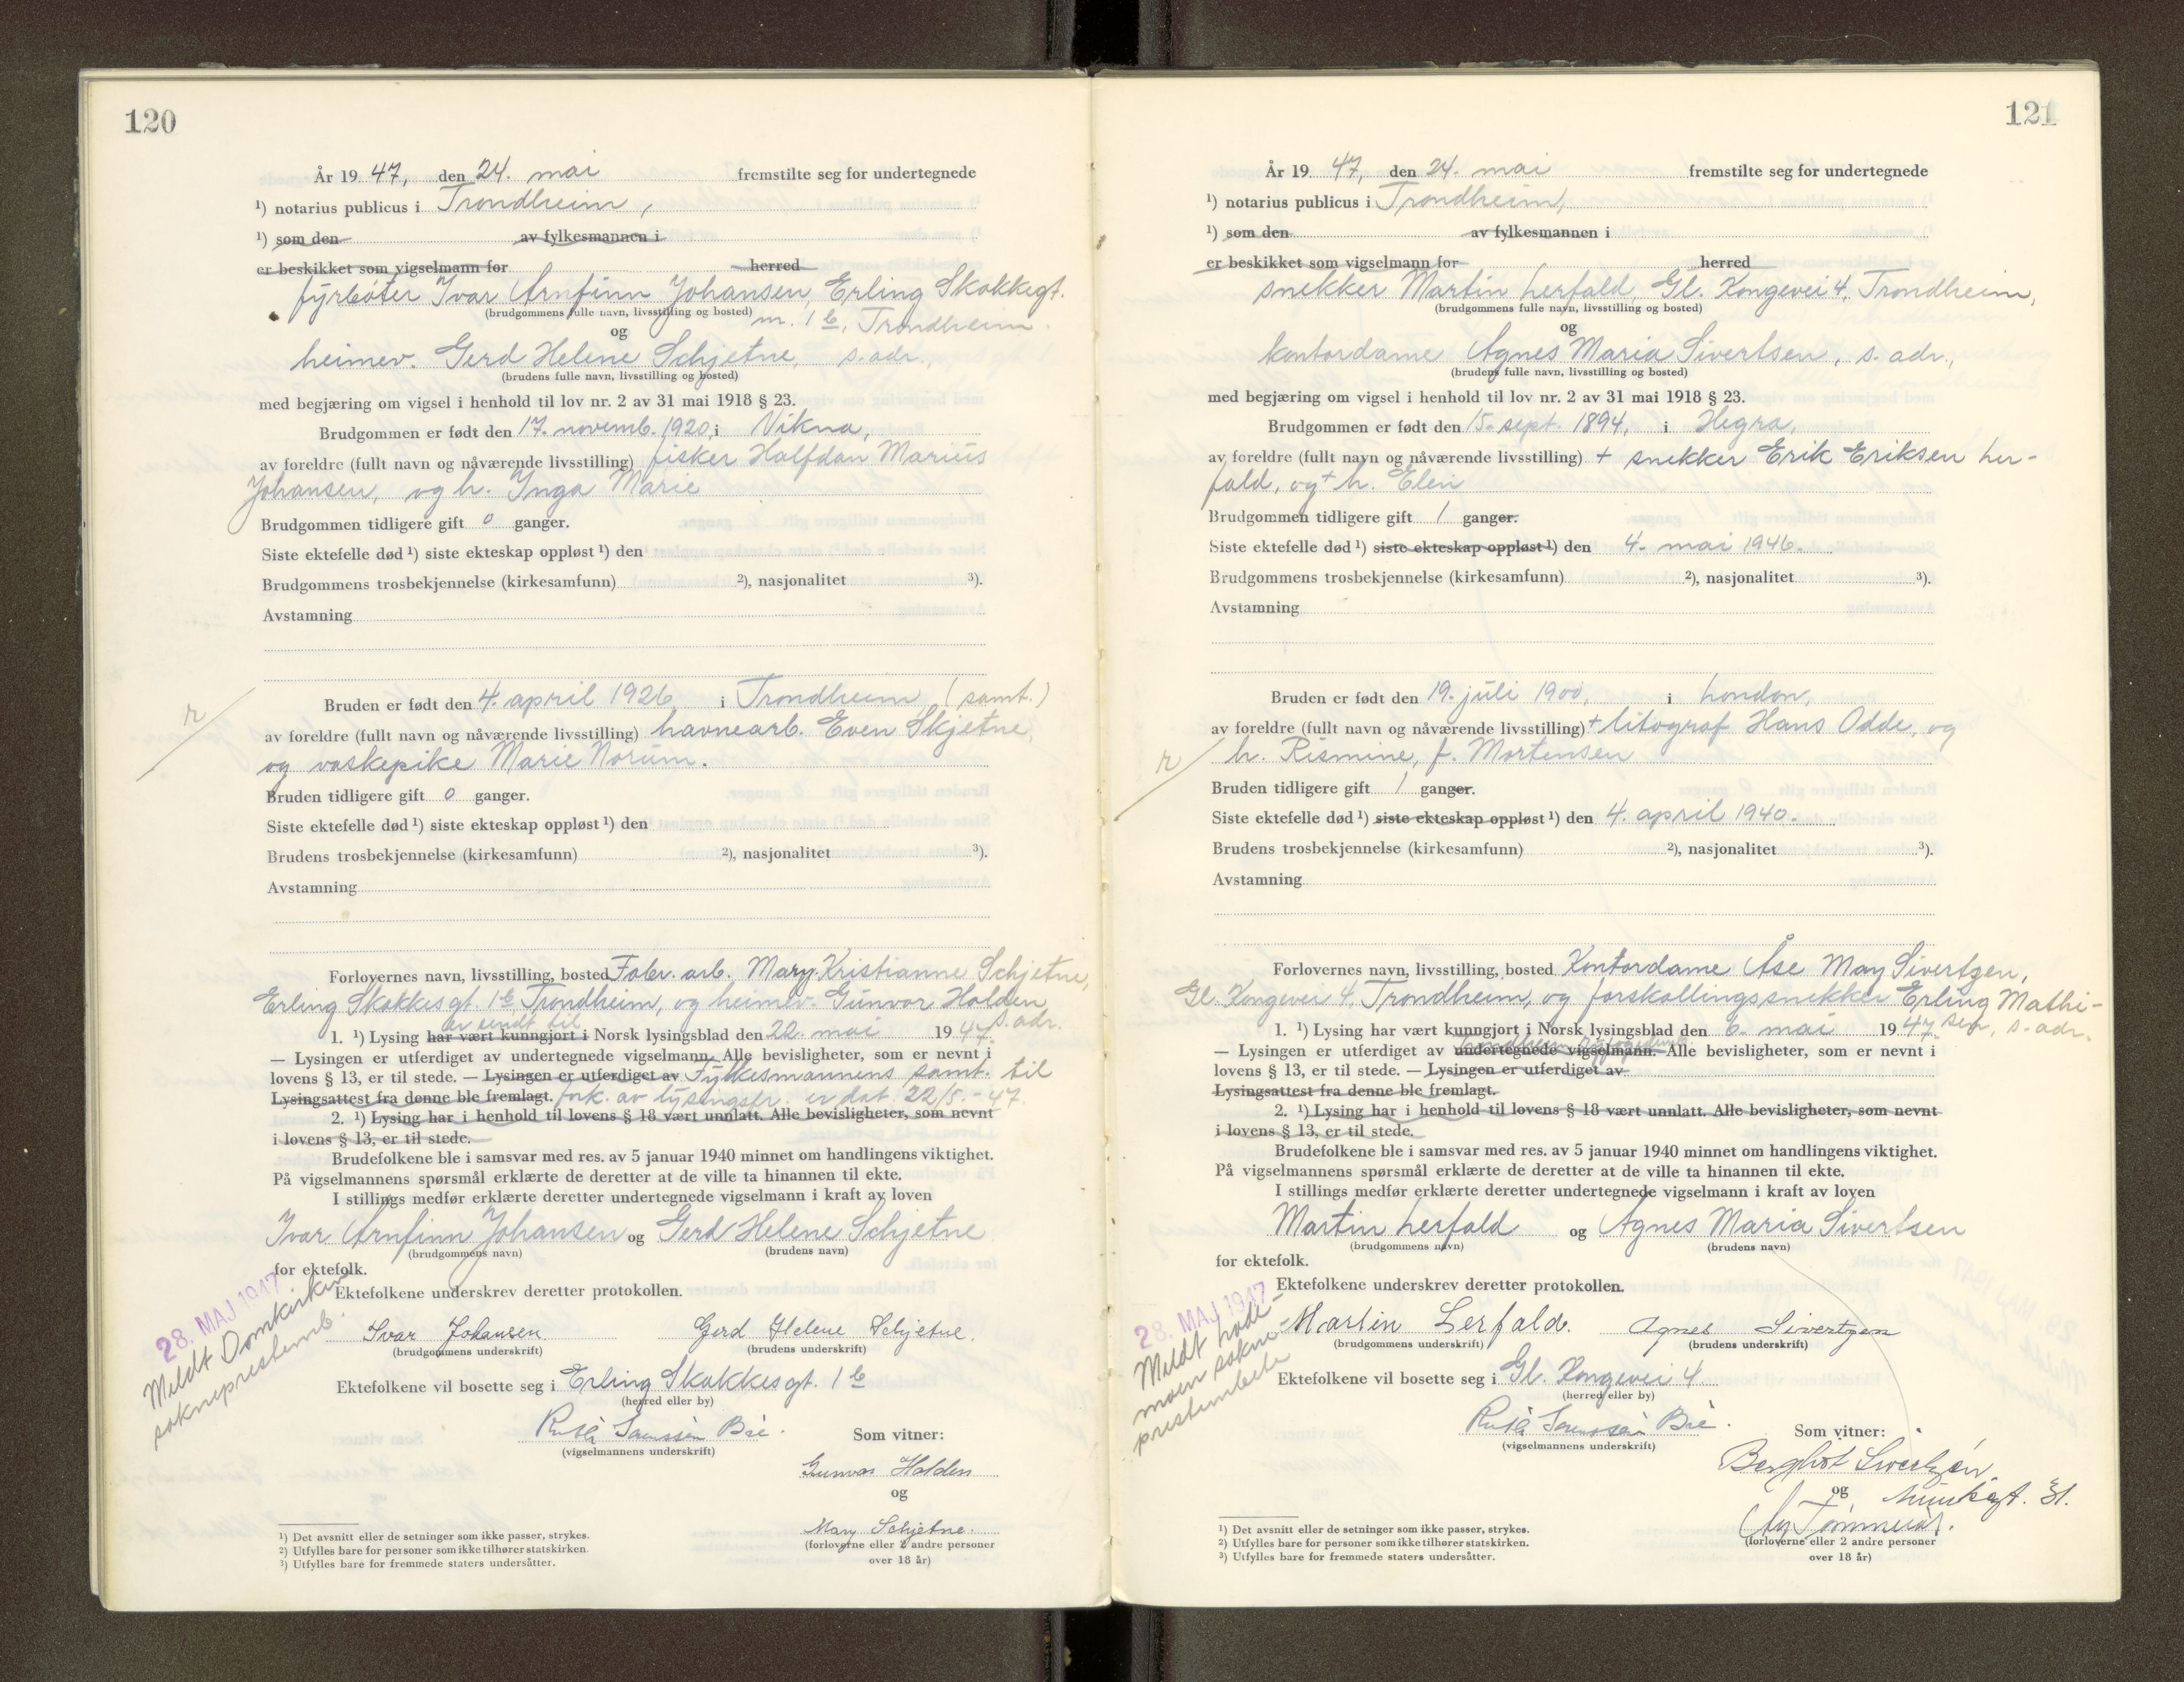 120
År 19 47, den 24. mai fremstilte seg for undertegnede
¹) notarius publicus i Trondheim,
¹) som den av fylkesmannen i
er beskikket som vigselmann for herred
fyrbøter Ivar Arnfinn Johansen, Erling Skakkegt.
(brudgommens fulle navn, livsstilling og bosted) m. 1 b, Trondheim.
og
heimev. Gerd Helene Schjetne, s. adr.,
(brudens fulle navn, livsstilling og bosted)
med begjæring om vigsel i henhold til lov nr. 2 av 31 mai 1918 § 23.
Brudgommen er født den 17. novemb. 1920, i Vikna,
av foreldre (fullt navn og nåværende livsstilling) fisker Halfdan Marius
Johansen, og h. Inga Marie
Brudgommen tidligere gift 0 ganger.
Siste ektefelle død ¹) siste ekteskap oppløst ¹) den
Brudgommens trosbekjennelse (kirkesamfunn) ²), nasjonalitet ³).
Avstamning
Bruden er født den 4. april 1926 i Trondheim, (samt.)
r
av foreldre (fullt navn og nåværende livsstilling) havnearb. Even Skjetne,
og vaskepike Marie Norum.
Bruden tidligere gift 0 ganger.
Siste ektefelle død ¹) siste ekteskap oppløst ¹) den
Brudens trosbekjennelse (kirkesamfunn) ²), nasjonalitet ³).
Avstamning
Forlovernes navn, livsstilling, bosted Fabr. arb. Mary Kristianne Schjetne,
Erling Skakkes gt. 1 b, Trondheim, og heimev. Gunvor Holden,
er sendt til s. adr.
1. ¹) Lysing har vært kunngjort i Norsk lysingsblad den 22. mai 19 47
— Lysingen er utferdiget av undertegnede vigselmann. Alle bevisligheter, som er nevnt i
lovens § 13, er til stede. — Lysingen er utferdiget av Fylkesmannens samt. til
Lysingsattest fra denne ble fremlagt. fork. av lysingsfr. er dat. 22/5.-47.
2. ¹) Lysing har i henhold til lovens § 18 vært unnlatt. Alle bevisligheter, som nevnt
i lovens § 13, er til stede.
Brudefolkene ble i samsvar med res. av 5 januar 1940 minnet om handlingens viktighet.
På vigselmannens spørsmål erklærte de deretter at de ville ta hinannen til ekte.
I stillings medfør erklærte deretter undertegnede vigselmann i kraft av loven
Ivar Arnfinn Johansen og Gerd Helene Schjetne
(brudgommens navn) (brudens navn)
for ektefolk.
Ektefolkene underskrev deretter protokollen.
28. MAJ 1947
Meldt Domkirken
sokneprestemb.
Ivar Johansen Gerd Helene Schjetne.
(brudgommens underskrift) (brudens underskrift)
Ektefolkene vil bosette seg i Erling Skakkes gt. 1 b
(herred eller by)
(vigselmannens underskrift)
Som vitner:
Gunvor Holden
og
Mary Schjetne.
(forloverne eller 2 andre personer
over 18 år)
¹) Det avsnitt eller de setninger som ikke passer, strykes.
²) Utfylles bare for personer som ikke tilhører statskirken.
³) Utfylles bare for fremmede staters undersåtter.
121
År 19 47, den 24. mai fremstilte seg for undertegnede
¹) notarius publicus i Trondheim,
¹) som den av fylkesmannen i
er beskikket som vigselmann for herred
snekker Martin Lerfald, Gl. Kongevei 4, Trondheim,
(brudgommens fulle navn, livsstilling og bosted)
og
kontordame Agnes Maria Sivertsen, s. adr.,
(brudens fulle navn, livsstilling og bosted)
med begjæring om vigsel i henhold til lov nr. 2 av 31 mai 1918 § 23.
Brudgommen er født den 15. sept. 1894, i Hegra,
av foreldre (fullt navn og nåværende livsstilling) + snekker Erik Eriksen Ler-
fald, og + h. Elen
Brudgommen tidligere gift 1 ganger.
Siste ektefelle død ¹) siste ekteskap oppløst ¹) den 4. mai 1946.
Brudgommens trosbekjennelse (kirkesamfunn) ²), nasjonalitet ³).
Avstamning
Bruden er født den 19. juli 1900, i London,
av foreldre (fullt navn og nåværende livsstilling) + litograf Hans Odde, og
r
h. Rismine, f. Mortensen
Bruden tidligere gift 1 ganger.
Siste ektefelle død ¹) siste ekteskap oppløst ¹) den 4. april 1940.
Brudens trosbekjennelse (kirkesamfunn) ²), nasjonalitet ³).
Avstamning
Forlovernes navn, livsstilling, bosted Kontordame Åse May Sivertzen,
Gl. Kongevei 4, Trondheim, og forskallingssnekker Erling Mathi-
sen, s. adr.
1. ¹) Lysing har vært kunngjort i Norsk lysingsblad den 6. mai 19 47
Trondheim byfogdemb.
— Lysingen er utferdiget av undertegnede vigselmann. Alle bevisligheter, som er nevnt i
lovens § 13, er til stede. — Lysingen er utferdiget av
Lysingsattest fra denne ble fremlagt.
2. ¹) Lysing har i henhold til lovens § 18 vært unnlatt. Alle bevisligheter, som nevnt
i lovens § 13, er til stede.
Brudefolkene ble i samsvar med res. av 5 januar 1940 minnet om handlingens viktighet.
På vigselmannens spørsmål erklærte de deretter at de ville ta hinannen til ekte.
I stillings medfør erklærte deretter undertegnede vigselmann i kraft av loven
Martin Lerfald og Agnes Maria Sivertsen
(brudgommens navn) (brudens navn)
for ektefolk.
Ektefolkene underskrev deretter protokollen.
28. MAJ 1947
Meldt Lade-
moen sokne-
prestembete
Martin Lerfald. Agnes Sivertzen
(brudgommens underskrift) (brudens underskrift)
Ektefolkene vil bosette seg i Gl. Kongevei 4
(herred eller by)
(vigselmannens underskrift)
Som vitner:
Bergljot Sivertzen
og
(forloverne eller 2 andre personer
over 18 år)
¹) Det avsnitt eller de setninger som ikke passer, strykes.
²) Utfylles bare for personer som ikke tilhører statskirken.
³) Utfylles bare for fremmede staters undersåtter.